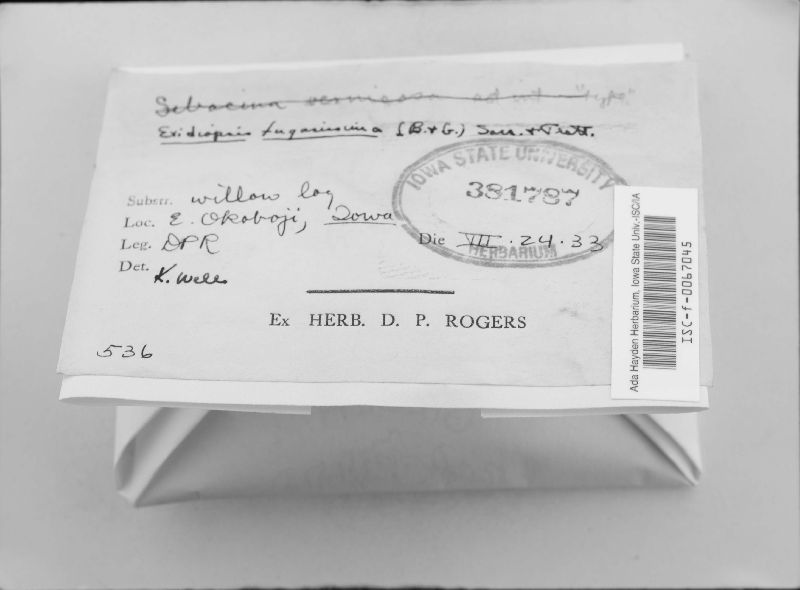 Sebacina vermicosa ad int. "type"
Exidiopsis fugacissima (B.+G.) Sacc. + Trott.
IOWA STATE UNIVERSITY
381787
HERBARIUM
Substr. willow log
Loc. E. Okoboji, Iowa
Leg. DPR
Die VII.24.33
Det. K. Wells
Ex HERB. D. P. ROGERS
536
Ada Hayden Herbarium, Iowa State Univ.-ISC/IA
ISC-f-0067045